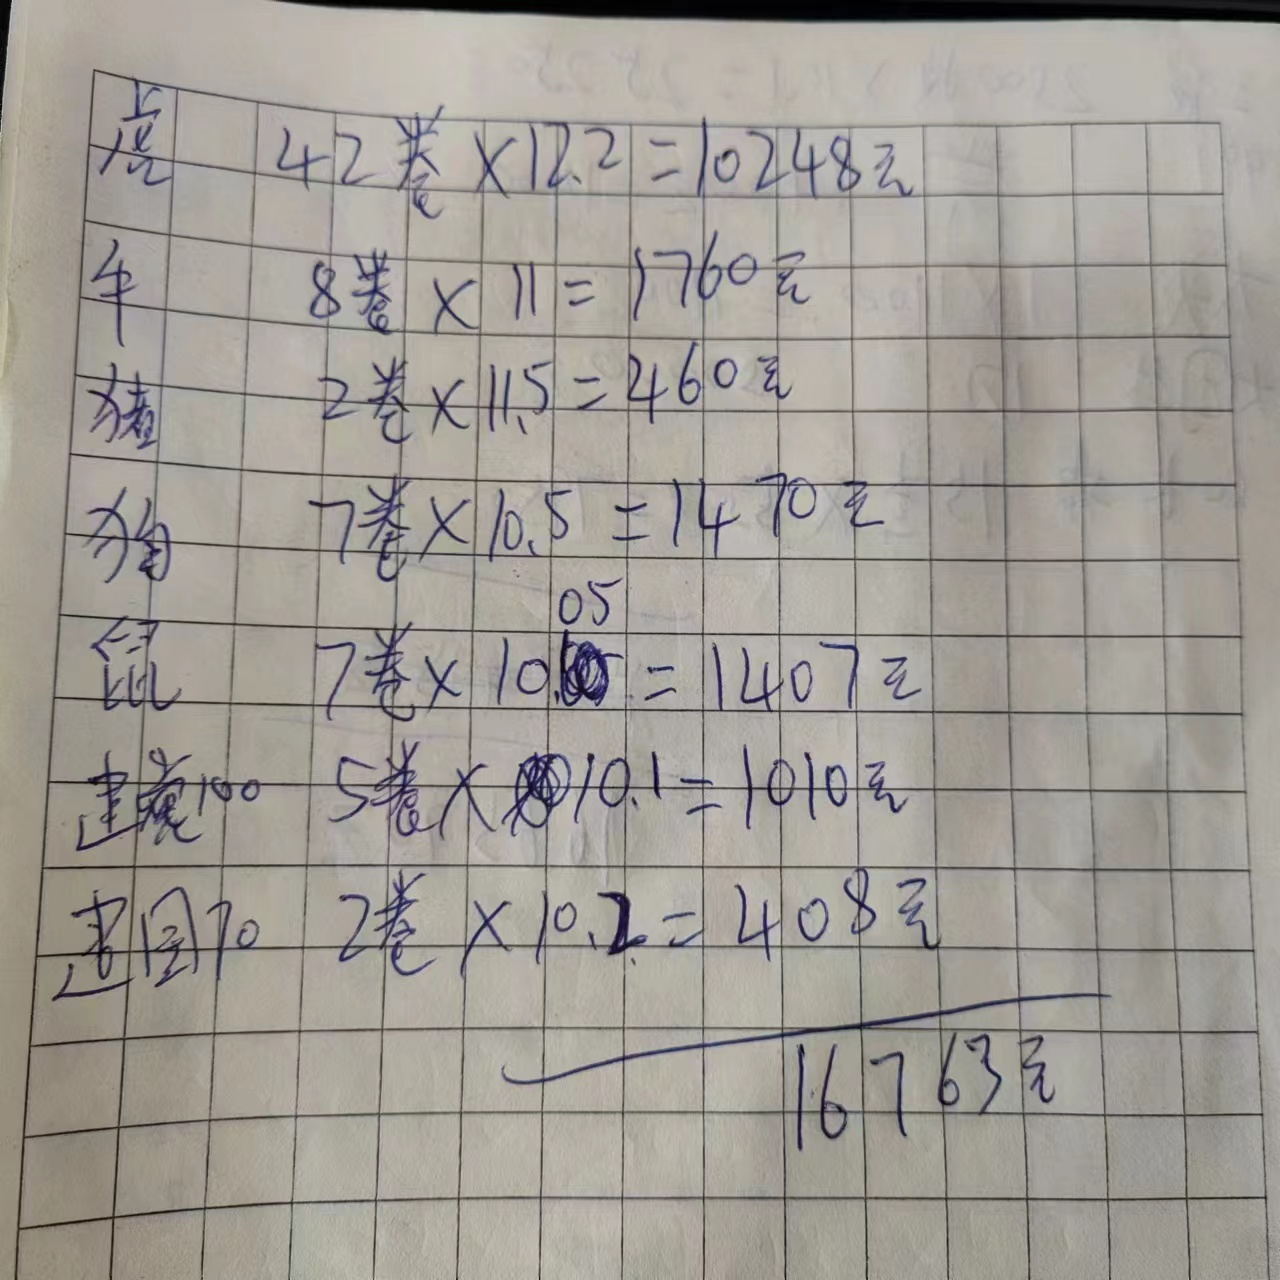 虎 42卷×12.2=10248元
牛 8卷×11=1760元
猪 2卷×11.5=460元
狗 7卷×10.5=1470元
05
鼠 7卷×10.=1407元
建党100 5卷×10.1=1010元
建国70 2卷×10.2=408元
16763元